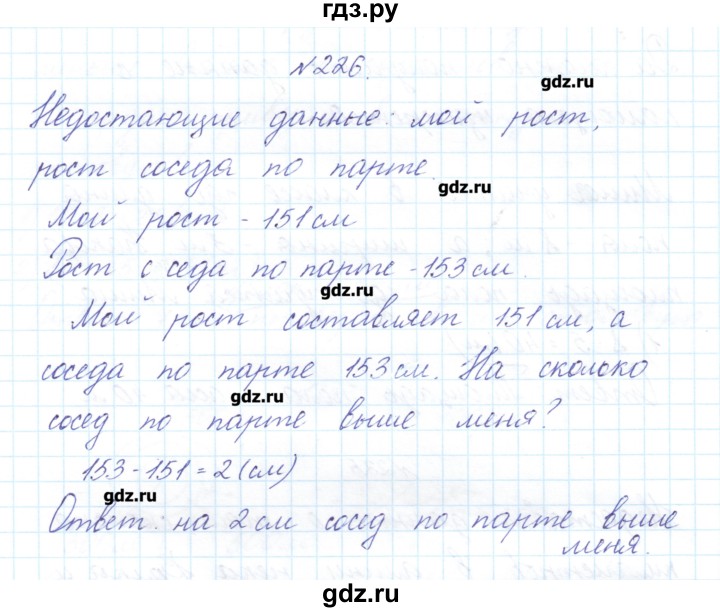 гдз.ру
№226.
gdz.ru
Недостающие данные: мой рост,
рост соседа по парте.
gdz.ru
Мой рост - 151 см
Рост с седа по парте - 153 см.
gdz.ru
Мой рост составляет 151 см, а
соседа по парте 153 см. На сколько
gdz.ru
сосед по парте выше меня?
153-151=2(см)
gdz.ru
Ответ: на 2 см сосед по парте выше
меня.
gdz.ru